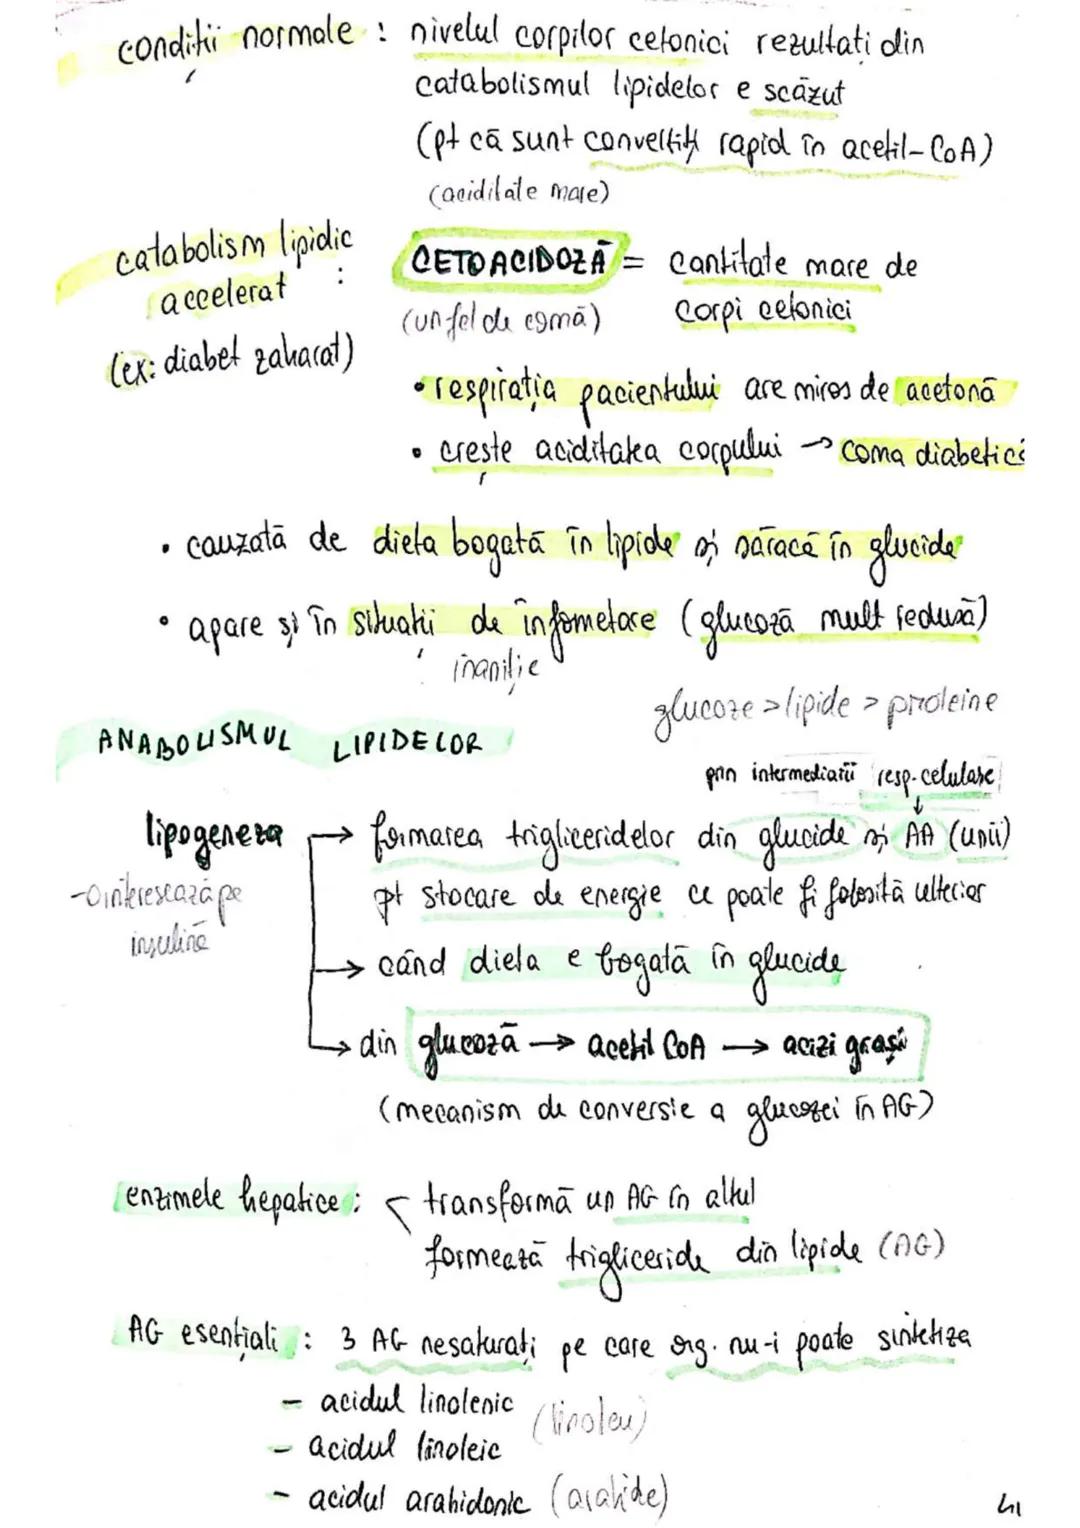 condiții normale : nivelul corpilor cetonici rezultați din
catabolismul lipidelor e scăzut
(pt că sunt convertiți rapid în acetil-CoA)
(aciditate mare)
catabolism lipidic accelerat : CETOACIDOZĂ = cantitate mare de
corpi cetonici
(un fel de comă)
(ex: diabet zaharat)
• respirația pacientului are miros de acetonă
• crește aciditatea corpului → coma diabetică
• cauzată de dieta bogată în lipide și săracă în glucide
• apare și în situații de înfometare (glucoză mult redusă)
inaniție
glucoze > lipide > proteine
ANABOLISMUL LIPIDELOR
prin intermediarii resp. celulare
↓
lipogeneza → formarea trigliceridelor din glucide și AA (unii)
pt stocare de energie ce poate fi folosită ulterior
-o interesează pe
insulină
→ când dieta e bogată în glucide
→ din glucoză → acetil CoA → acizi grași
(mecanism de conversie a glucozei în AG)
enzimele hepatice : < transformă un AG în altul
formează trigliceride din lipide (AG)
AG esențiali : 3 AG nesaturați pe care org. nu-i poate sintetiza
- acidul linolenic
(linoleu)
- acidul linoleic
- acidul arahidonic (arahide)
41